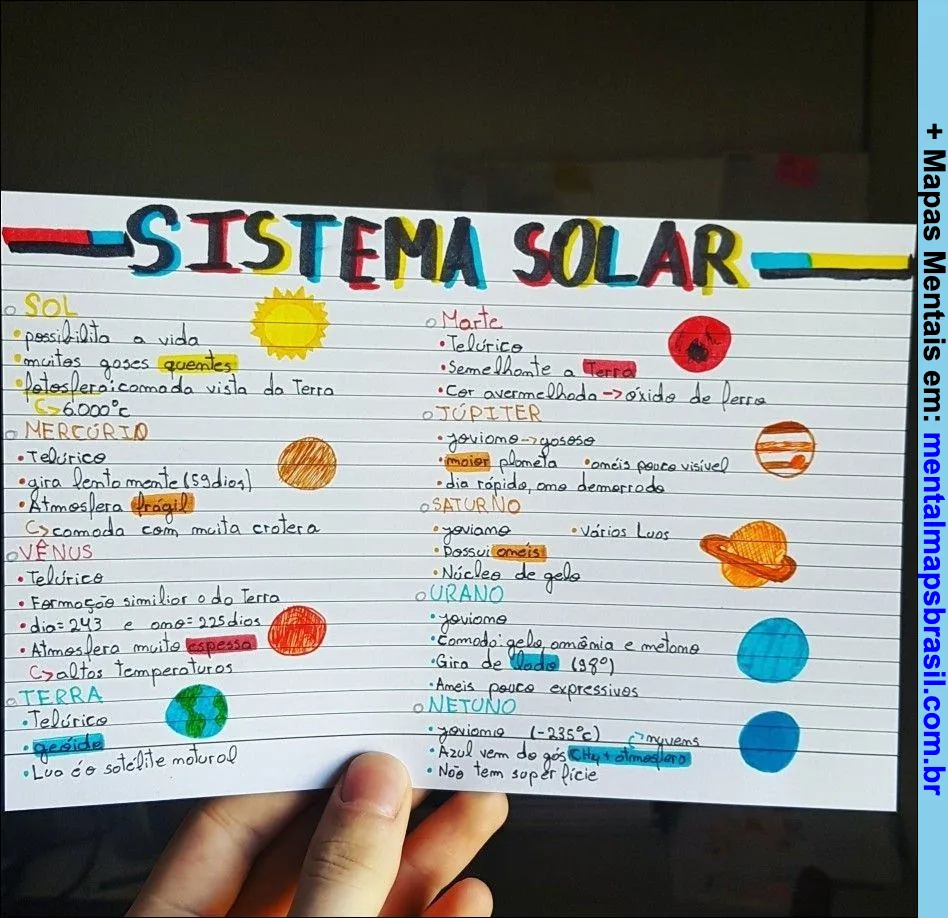 SISTEMA SOLAR
SOL
• possibilita a vida
• muitos gases quentes
• fotosfera: camada vista da Terra
↳ 6.000°c
MERCÚRIO
• Telúrico
• gira lentamente (59 dias)
• Atmosfera frágil
↳ camada com muita cratera
VÊNUS
• Telúrico
• Formação similar a da Terra
• dia = 243 e ano = 225 dias
• Atmosfera muito espessa
↳ altas temperaturas
TERRA
• Telúrico
• geóide
• Lua é o satélite natural
Marte
• Telúrico
• Semelhante a Terra
• Cor avermelhada → óxido de ferro
JÚPITER
• joviano → gasoso
• maior planeta • anéis pouco visível
• dia rápido, ano demorado
SATURNO
• joviano • Várias Luas
• Possui anéis
• Núcleo de gelo
URANO
• joviano
• Camada: gelo, amônia e metano
• Gira de lado (98°)
• Aneis pouco expressivos
NETUNO
• joviano (-235°c)
↱ nuvens
• Azul vem do gás CH4 + atmosfera
• Não tem superfície
+ Mapas Mentais em: mentalmapsbrasil.com.br